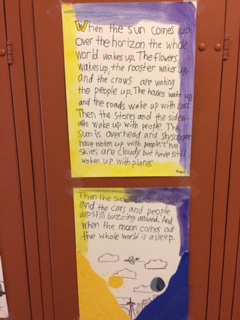 When the sun comes up
over the horizon the whole
world wakes up. The flowers
wakeup, the rooster wakes up
and the crows are waking
the people up. The houses wake up
and the roads wake up with cars.
Then the stores and the sidew-
alks wake up with people. The
sun is overhead and skyscrapers
have woken up with people. The
skies are cloudy but have still
woken up with planes.
Then the sun
and the cars and people
are still buzzing around. And
when the moon comes out
the whole world is asleep.